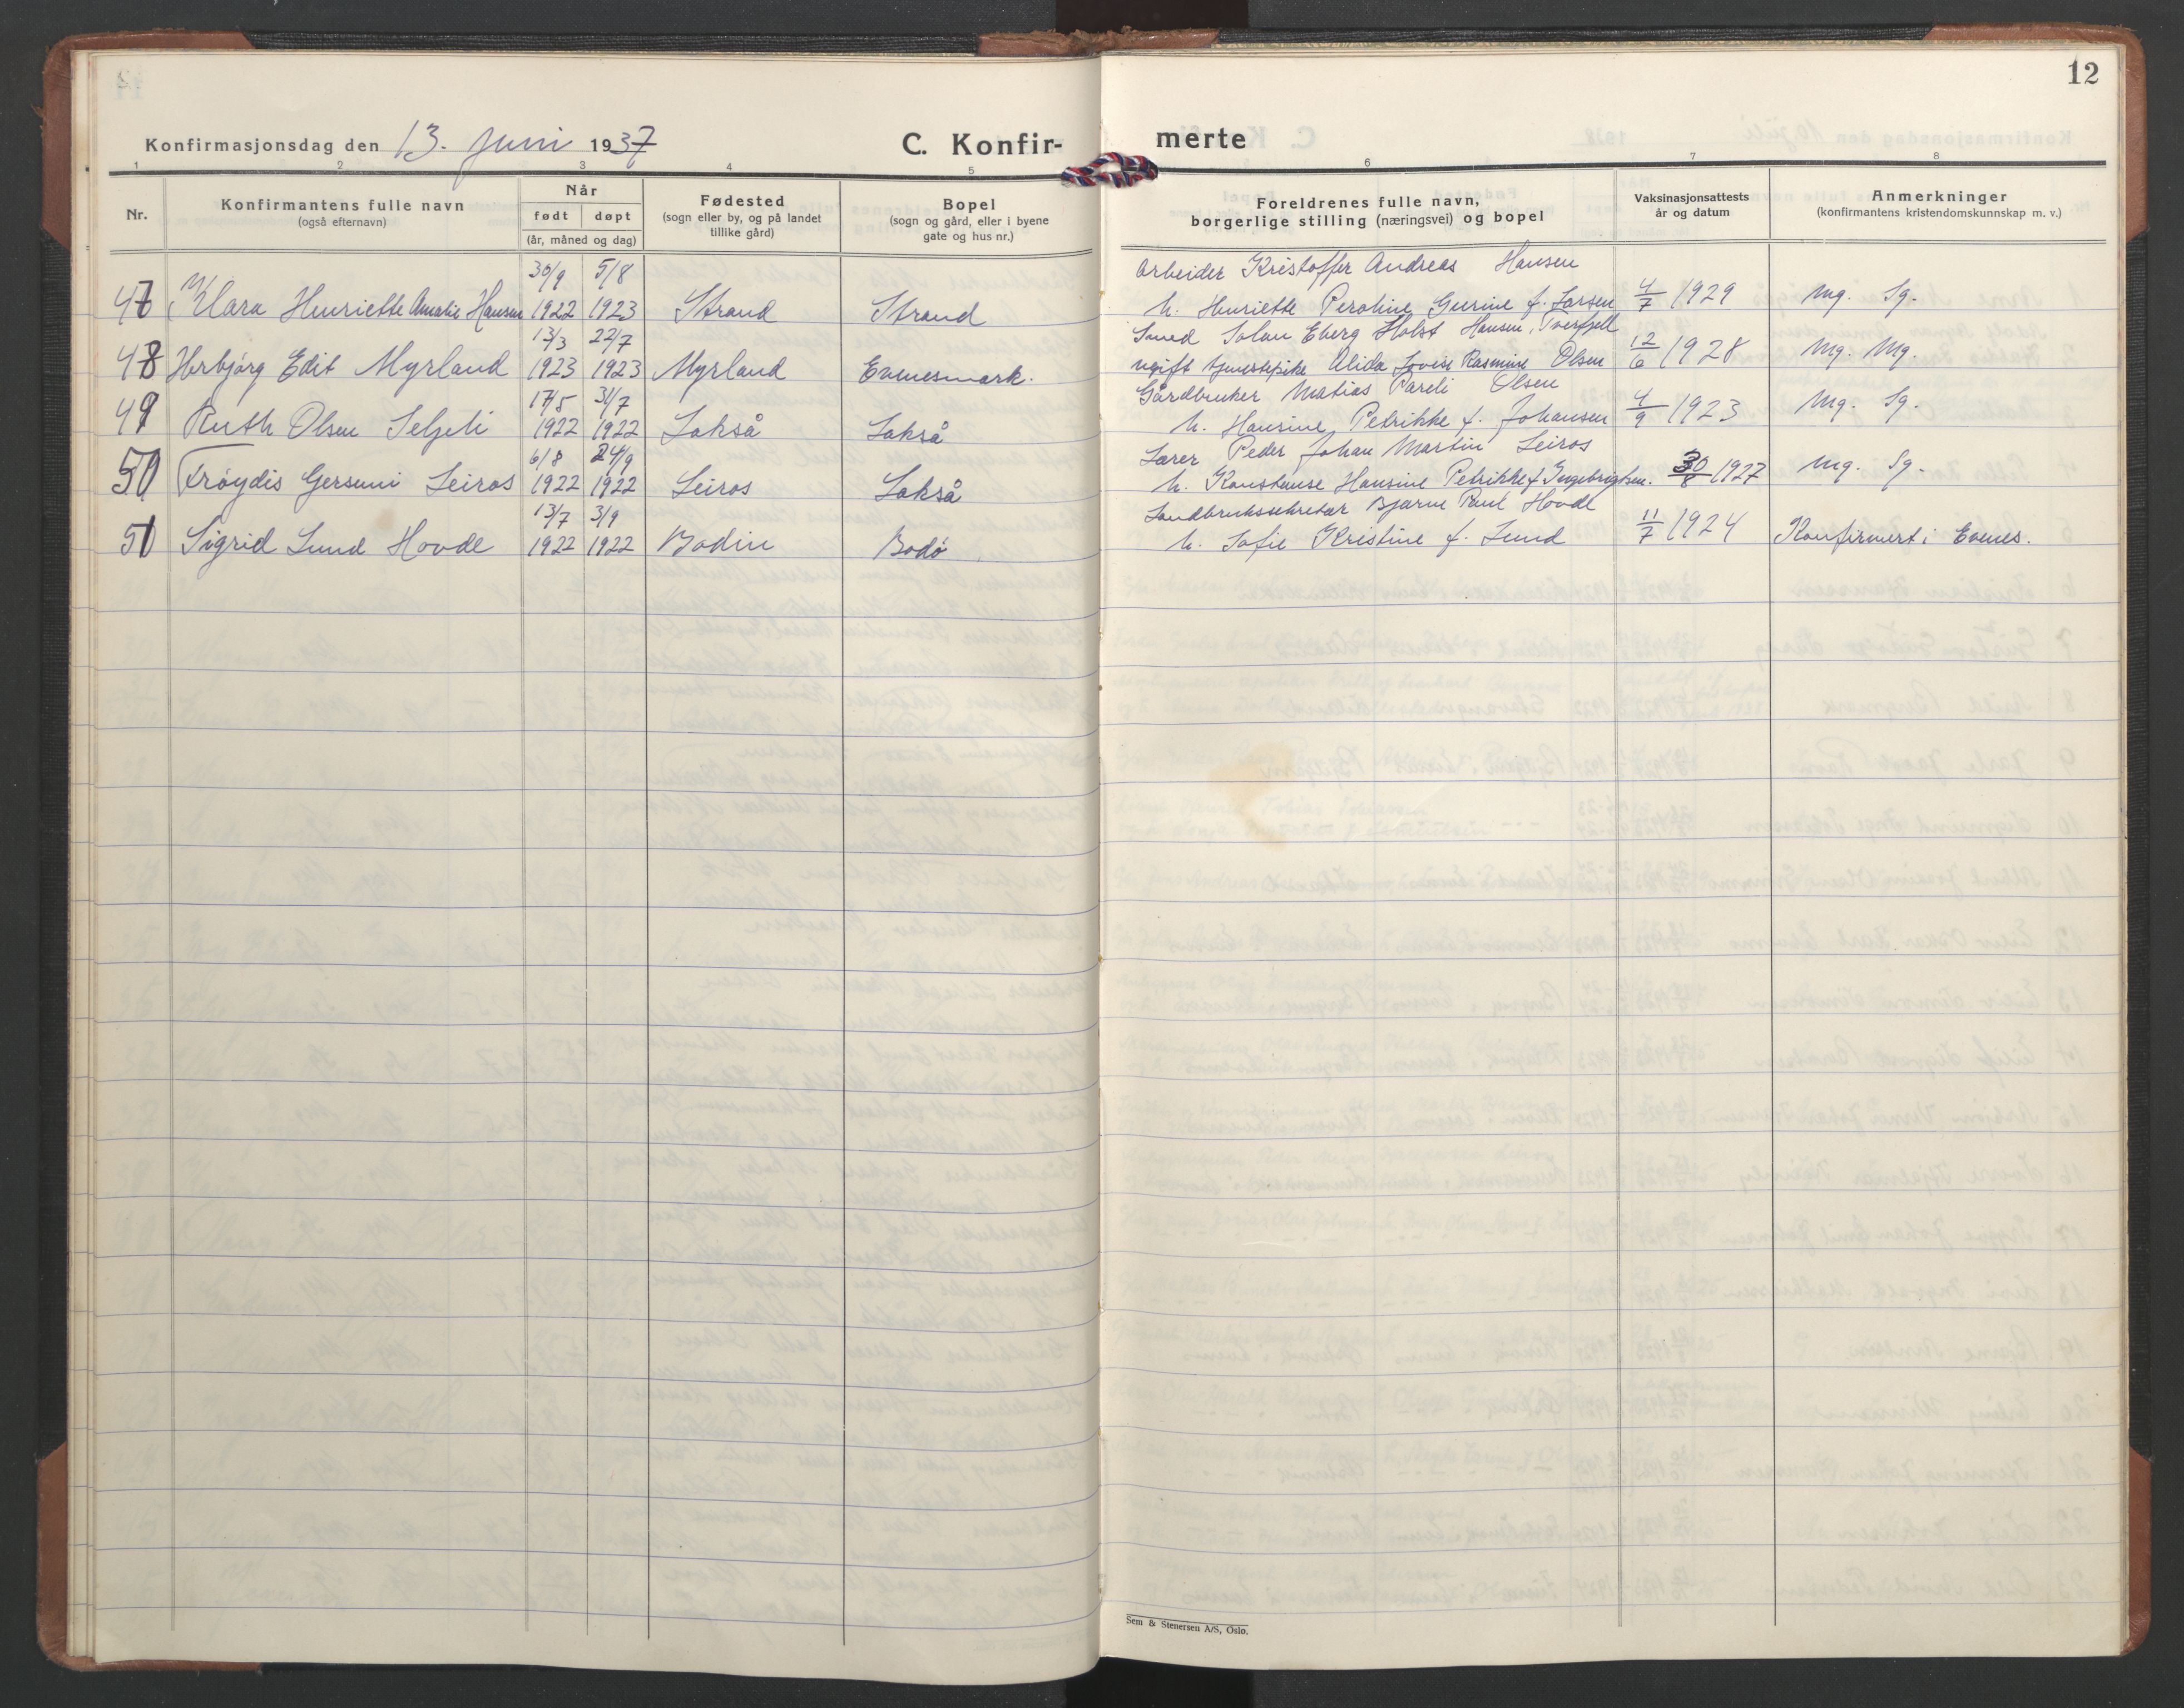 12
Konfirmasjonsdag den 13. juni 1937
C. Konfir-
merte
1 2 3 4 5 6 7 8
Nr.
Konfirmantens fulle navn
(også efternavn)
Når
født døpt
(år, måned og dag)
Fødested
(sogn eller by, og på landet
tillike gård)
Bopel
(sogn og gård, eller i byene
gate og hus nr.)
Foreldrenes fulle navn,
borgerlige stilling (næringsvei) og bopel
Vaksinasjonsattests
år og datum
Anmerkninger
(konfirmantens kristendomskunnskap m. v.)
30/9 5/8 Arbeider Kristoffer Andreas Hansen
47 Klara Henriette Amalie Hansen 1922 1923 Strand Strand h. Henriette Peroline Gurine f. Larsen 4/7 1929 Mg. Sg.
13/3 22/7 Smed Solan Eberg Holst Hansen, Tverfjell
48 Herbjørg Edit Myrland 1923 1923 Myrland Evenesmark. ugift tjenestepike Alida Lovise Rasmine Olsen 12/6 1928 Mg. Mg.
17/5 31/7 Gårdbruker Matias Pareli Olsen
49 Ruth Olsen Seljeli 1922 1922 Lakså Lakså h. Hansine Petrikke f. Johansen 4/9 1923 Mg. Sg.
6/8 24/9 Lærer Peder Johan Martin Leiros
50 Frøydis Gersemi Leiros 1922 1922 Leiros Lakså h. Konstanse Hansine Petrikke f. Ingebrigtsen. 30/8 1927 Mg. Sg.
13/7 3/9 Landbrukssekretær Bjarne Paul Hovde
51 Sigrid Lund Hovde 1922 1922 Bodin Bodø h. Sofie Kristine f. Lund 11/7 1924 Konfirmert i Evenes.
Sem & Stenersen A/S, Oslo.